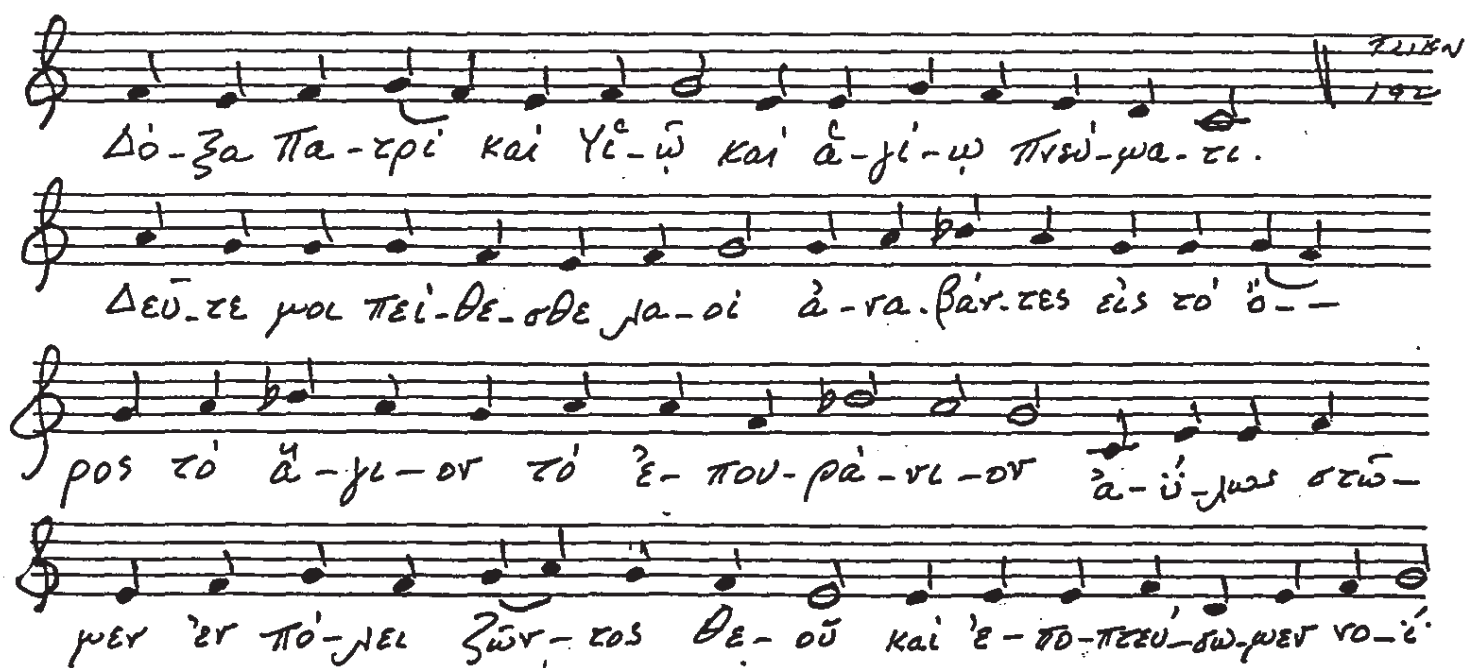 Δό-ξα Πα-τρί καί Υἱ-ῷ καί ἁ-γί-ῳ Πνεύ-μα-τι.
Δεῦ-τε μοι πεί-θε-σθε λα-οί ἀ-να-βάν-τες εἰς τό ὄ--
ρος τό ἅ-γι-ον τό ἐ-που-ρά-νι-ον ἀ-ΰ-λως στῶ-
μεν ἐν πό-λει ζῶν-τος Θε-οῦ καί ἐ-πο-πτεύ-σω-μεν νο-ΐ